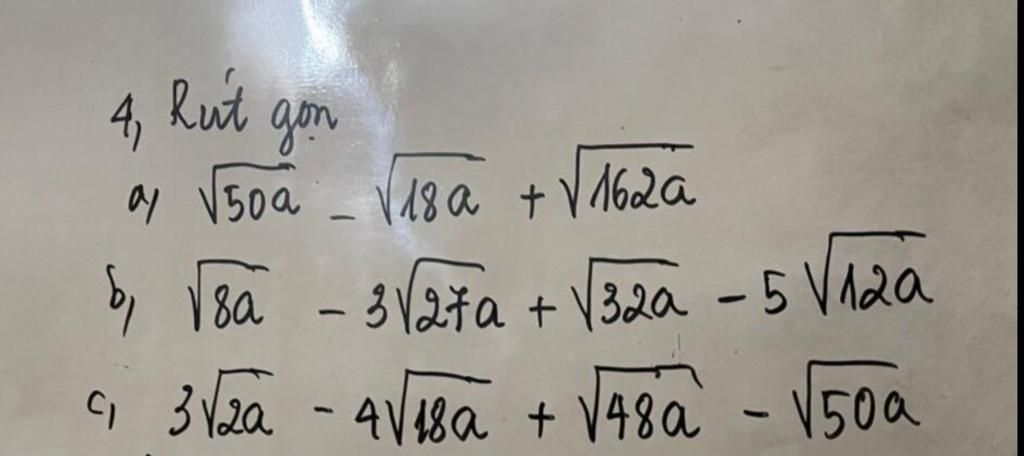 4, Rút gọn
a, √50a - √18a + √162a
b, √8a - 3√27a + √32a - 5√12a
c, 3√2a - 4√18a + √48a - √50a